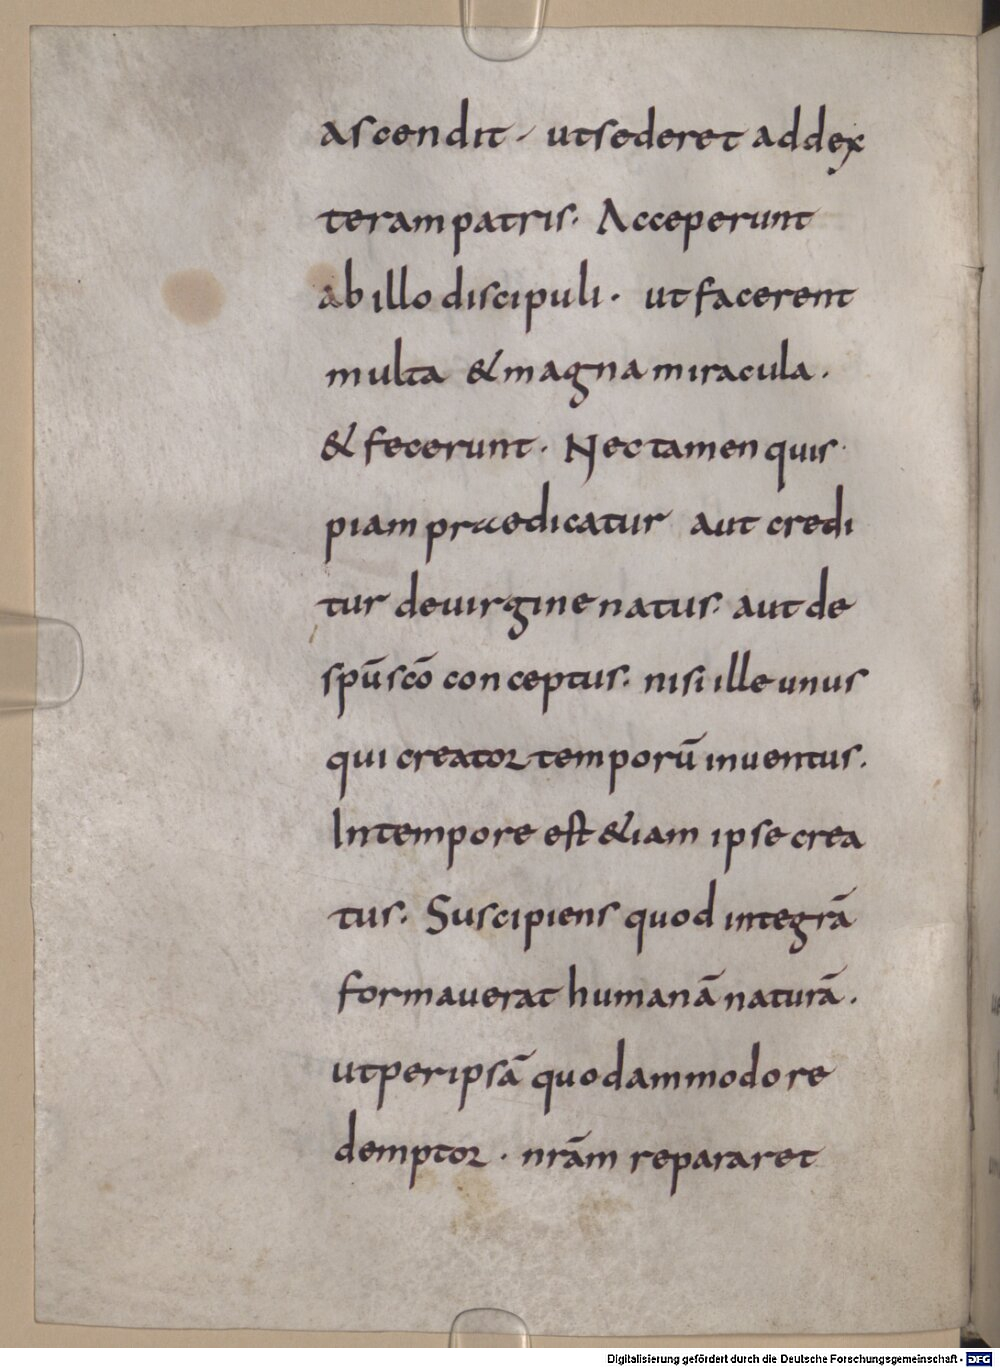 ascendit · ut sederet ad dex
teram patris · Acceperunt
ab illo discipuli · ut facerent
multa & magna miracula ·
& fecerunt · Nec tamen quis
piam praedicatur aut credi
tur de uirgine natus · aut de
spū scō conceptus · nisi ille unus
qui creator temporū inuentus ·
In tempore est &iam ipse crea
tus · Suscipiens quod integrā
formauerat humanā naturā ·
ut per ipsā quodammodo re
demptor · nrām repararet
Digitalisierung gefördert durch die Deutsche Forschungsgemeinschaft - DFG